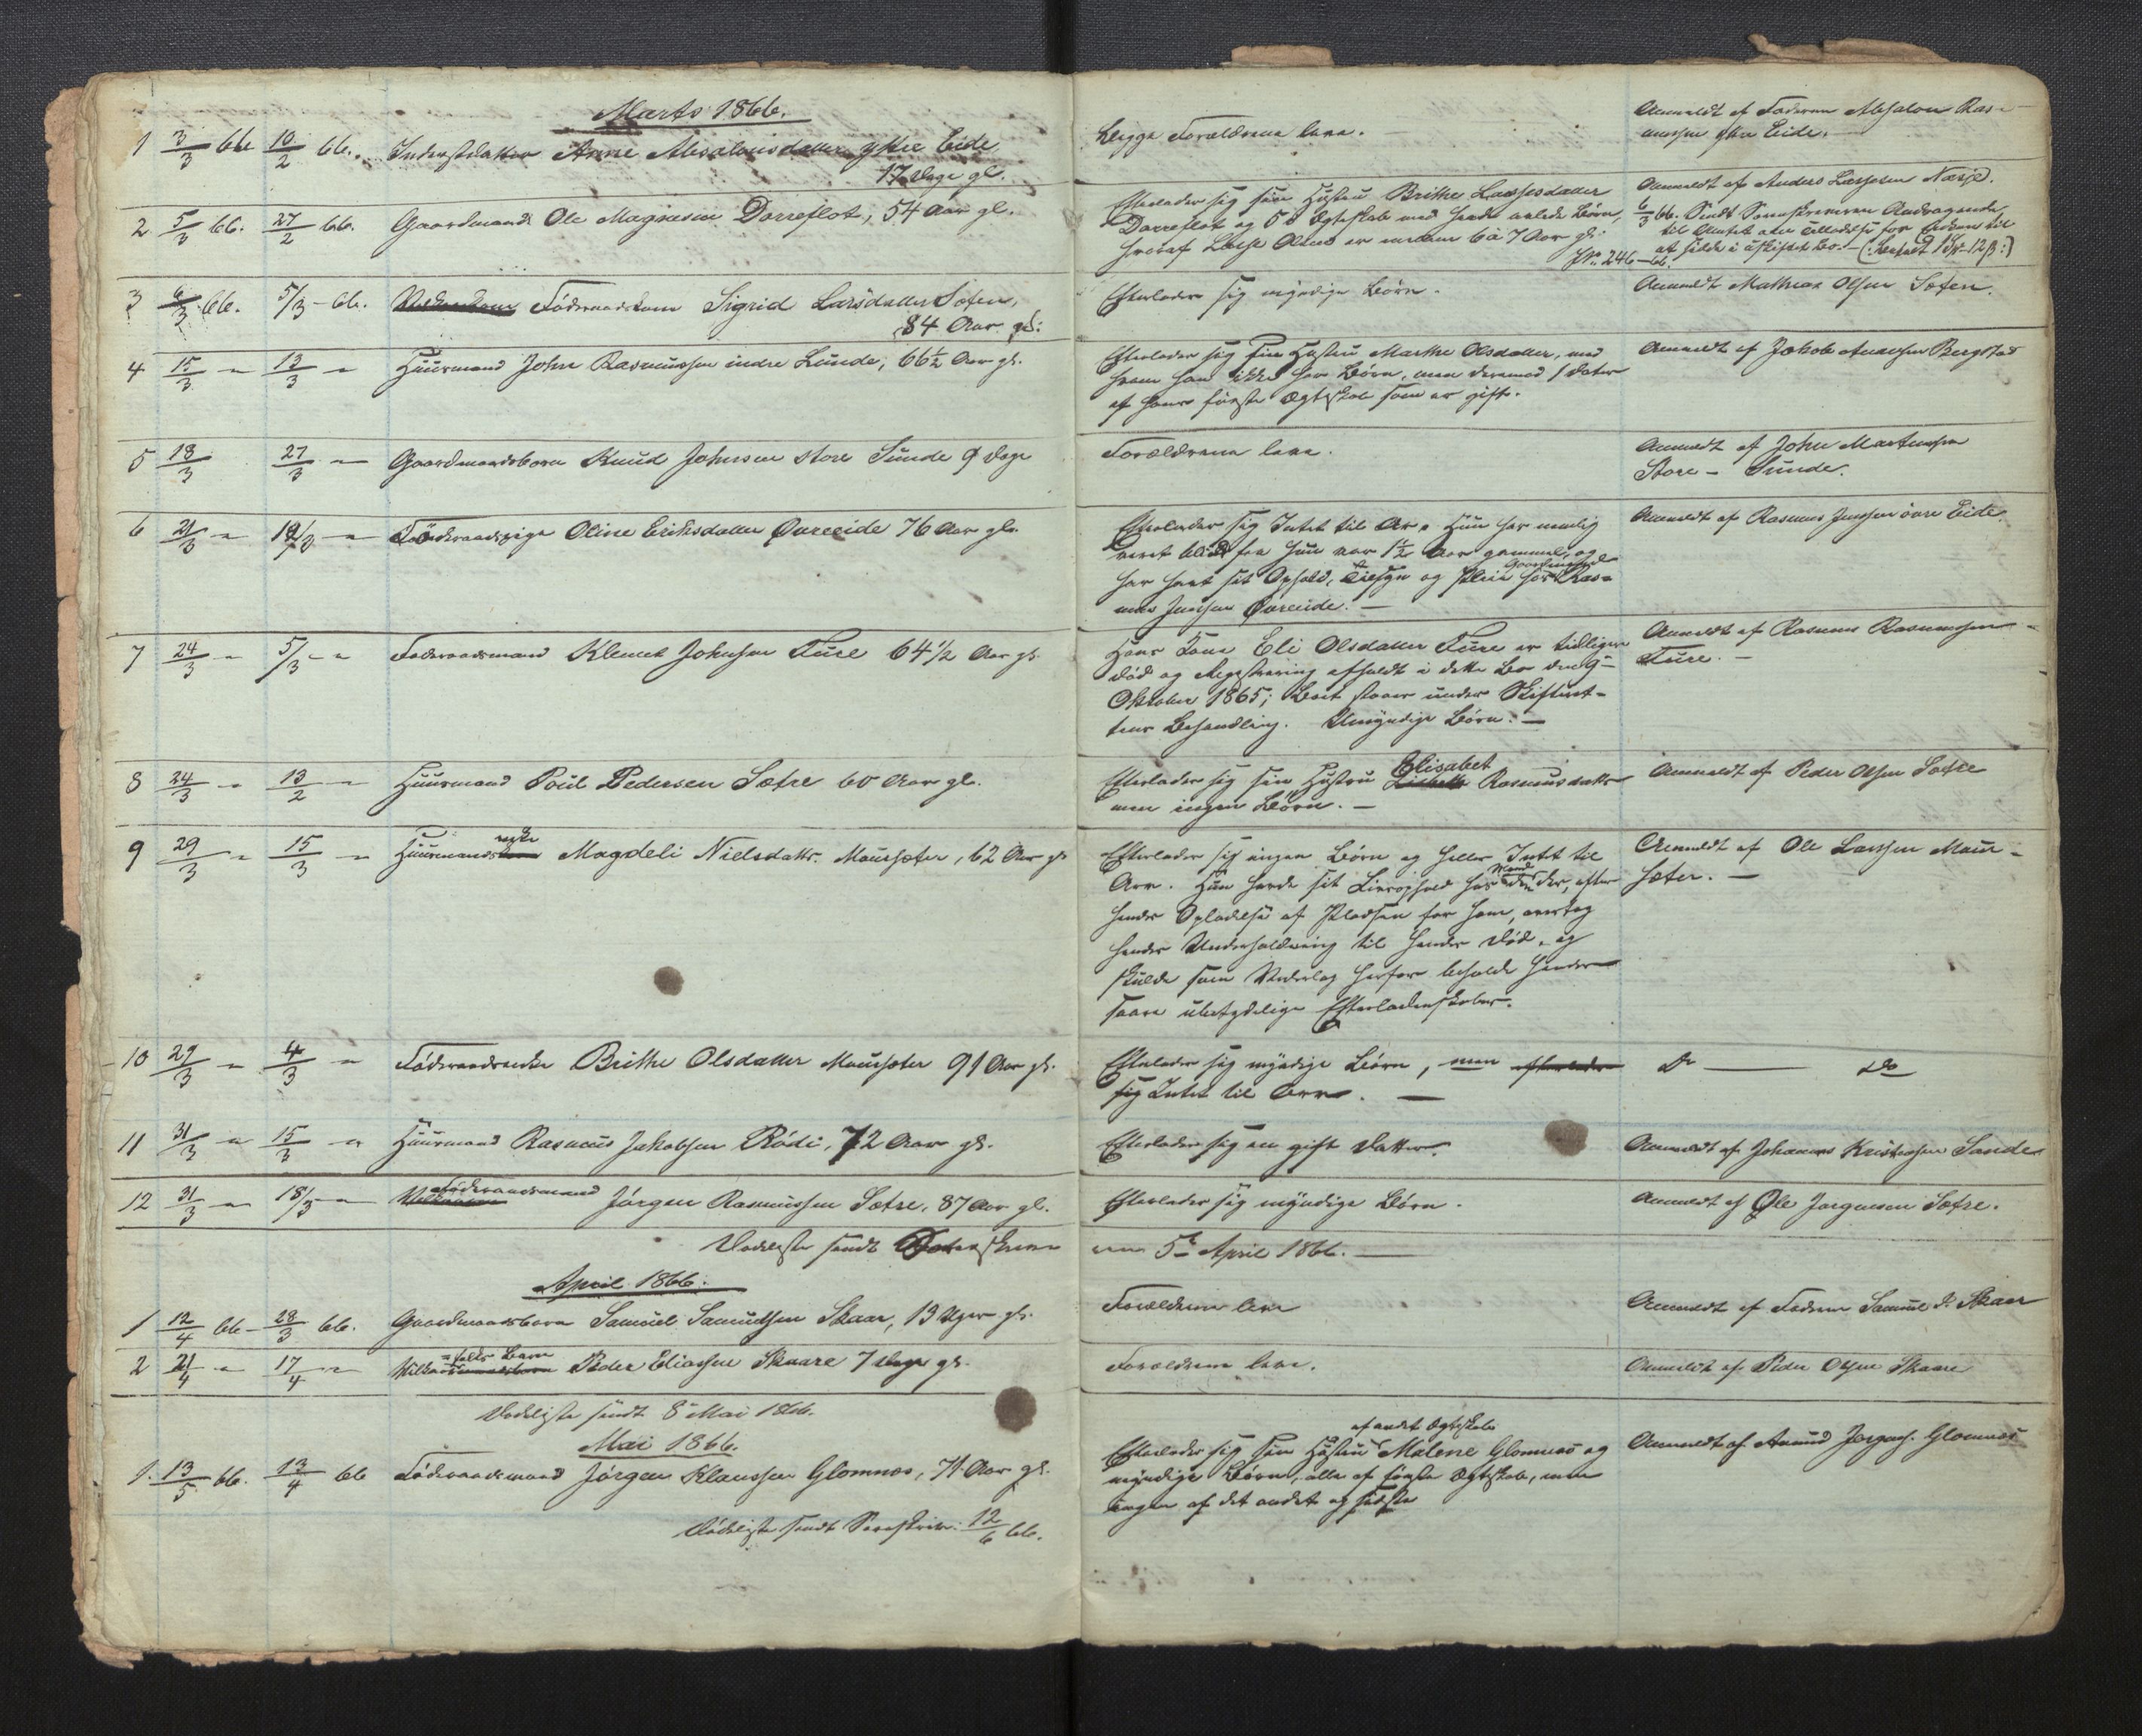 Marts 1866.
1 3/3 66 10/2 66. Inderstdatter Anne Absalonsdatter ytre Eide
17 Dage gl.
Begge Forældrene leve.
Anmeldt af Faderen Absalon Ras-
mussen ytre Eide.
2 5/3 66. 27/2 66. Gaardmand Ole Magnesen Dorreflot, 54 Aar gl.
Efterlader sig sin Hustru Brithe Lassesdatter
Dorreflot og 5 i Ægteskab med hende avlede Børn,
hvoraf Lasse Olsen er mellem 6 à 7 Aar gl.
JNo. 246-66.
Anmeldt af Anders Lassesen Nesje.
6/3 66. Sendt Sorenskriveren Andragende
til Amtet om Tilladelse for Enken til
at sidde i uskiftet Bo. - (: betalt 1 Spd 12 ß :)
3 6/3 66. 5/3 - 66. Føderaadskone Sigrid Larsdatter Sæten,
84 Aar gl:
Efterlader sig myndige Børn.
Anmeldt Mathias Olsen Sæten.
4 15/3 - 13/3 - Huusmand John Rasmussen indre Lunde, 66½ Aar gl.
Efterlader sig sin Hustru Marthe Olsdatter, med
hvem han ikke har Børn, men derimod 1 Datter
af hans første Ægteskab som er gift.
Anmeldt af Jakob Andersen Bergstad
5 18/3 27/3 - Gaardmandsbarn Knud Johnsen store Sunde 9 Dage
Forældrene leve.
Anmeldt af John Martinsen
Store - Sunde.
6 21/3 - 19/3 - Føderaadspige Oline Eriksdatter Øvreeide 76 Aar gl.
Efterlader sig Intet til Arv. Hun har nemlig
været blind fra hun var 1½ Aar gammel, og
har havt sit Ophold, Tilsyn og Pleie hos Gaardmand Ras-
mus Jensen Øvreeide. -
Anmeldt af Rasmus Jensen øvre Eide.
7 24/3 - 5/3 - - Føderaadsmand Klemet Johnsen Fure 64½ Aar gl.
Hans Kone Eli Olsdatter Fure er tidligere
død og Registrering afholdt i dette Bo den 9-
Oktober 1865; Boet staaer under Skifteret-
tens Behandling. Umyndige Børn. -
Anmeldt af Rasmus Rasmussen
Fure. -
8 24/3 - 13/2 - Huusmand Poul Pedersen Sætre 60 Aar gl.
Efterlader sig sin Hustru Elisabet Rasmusdatter
men ingen Børn. -
Anmeldt af Peder Olsen Sætre
9 29/3 - 15/3 - Huusmandsenke Magdeli Nielsdatter Maursæter, 62 Aar gl.
Efterlader sig ingen Børn og heller Intet til
Arv. Hun havde sit Livsophold hos den Mand der, efter
hendes Opladelse af Pladsen for ham, overtog
hendes Underholdning til hendes Død, og
skulde som Vederlag herfor beholde hendes
saare ubetydelige Efterladenskaber.
Anmeldt af Ole Larssen Maur-
sæter. -
10 29/3 - 4/3 - Føderaadsenke Brithe Olsdatter Maursæter 91 Aar gl.
Efterlader sig myndige Børn, men efterlader
sig Intet til Arv. -
Do - do
11 31/3 - 15/3 - Huusmand Rasmus Jakobsen Rødi, 72 Aar gl.
Efterlader sig en gift Datter.
Anmeldt af Johannes Kristensen Sande
12 31/3 - 18/3 - Føderaadsmand Jørgen Rasmussen Sætre, 87 Aar gl.
Efterlader sig myndige Børn.
Anmeldt af Ole Jørgensen Sætre.
Dødliste sendt Sorenskriveren 5te April 1866. -
April 1866.
1 12/4 66 - 28/3 66. Gaardmandsbarn Samuel Samuelsen Skaar, 13 Uger gl.
Forældrene leve
Anmeldt af Faderen Samuel P. Skaar
2 21/4 - 17/4 - Peder Eliassen Skaare 7 Dage gl.
Forældrene leve.
Anmeldt af Peder Olsen Skaare
Dødliste sendt 8 Mai 1866.
Mai 1866.
1. 13/5 66. 13/4 66 Føderaadsmand Jørgen Klaussen Glomnæs, 71 Aar gl.
af andet Ægteskab
Efterlader sig sin Hustru Malene Glomnæs og
myndige Børn, alle af første Ægteskab, men
ingen af det andet og sidste
Anmeldt af Amund Jørgens. Glomnæs
Dødliste sendt Sorenskriv: 12/6 66.